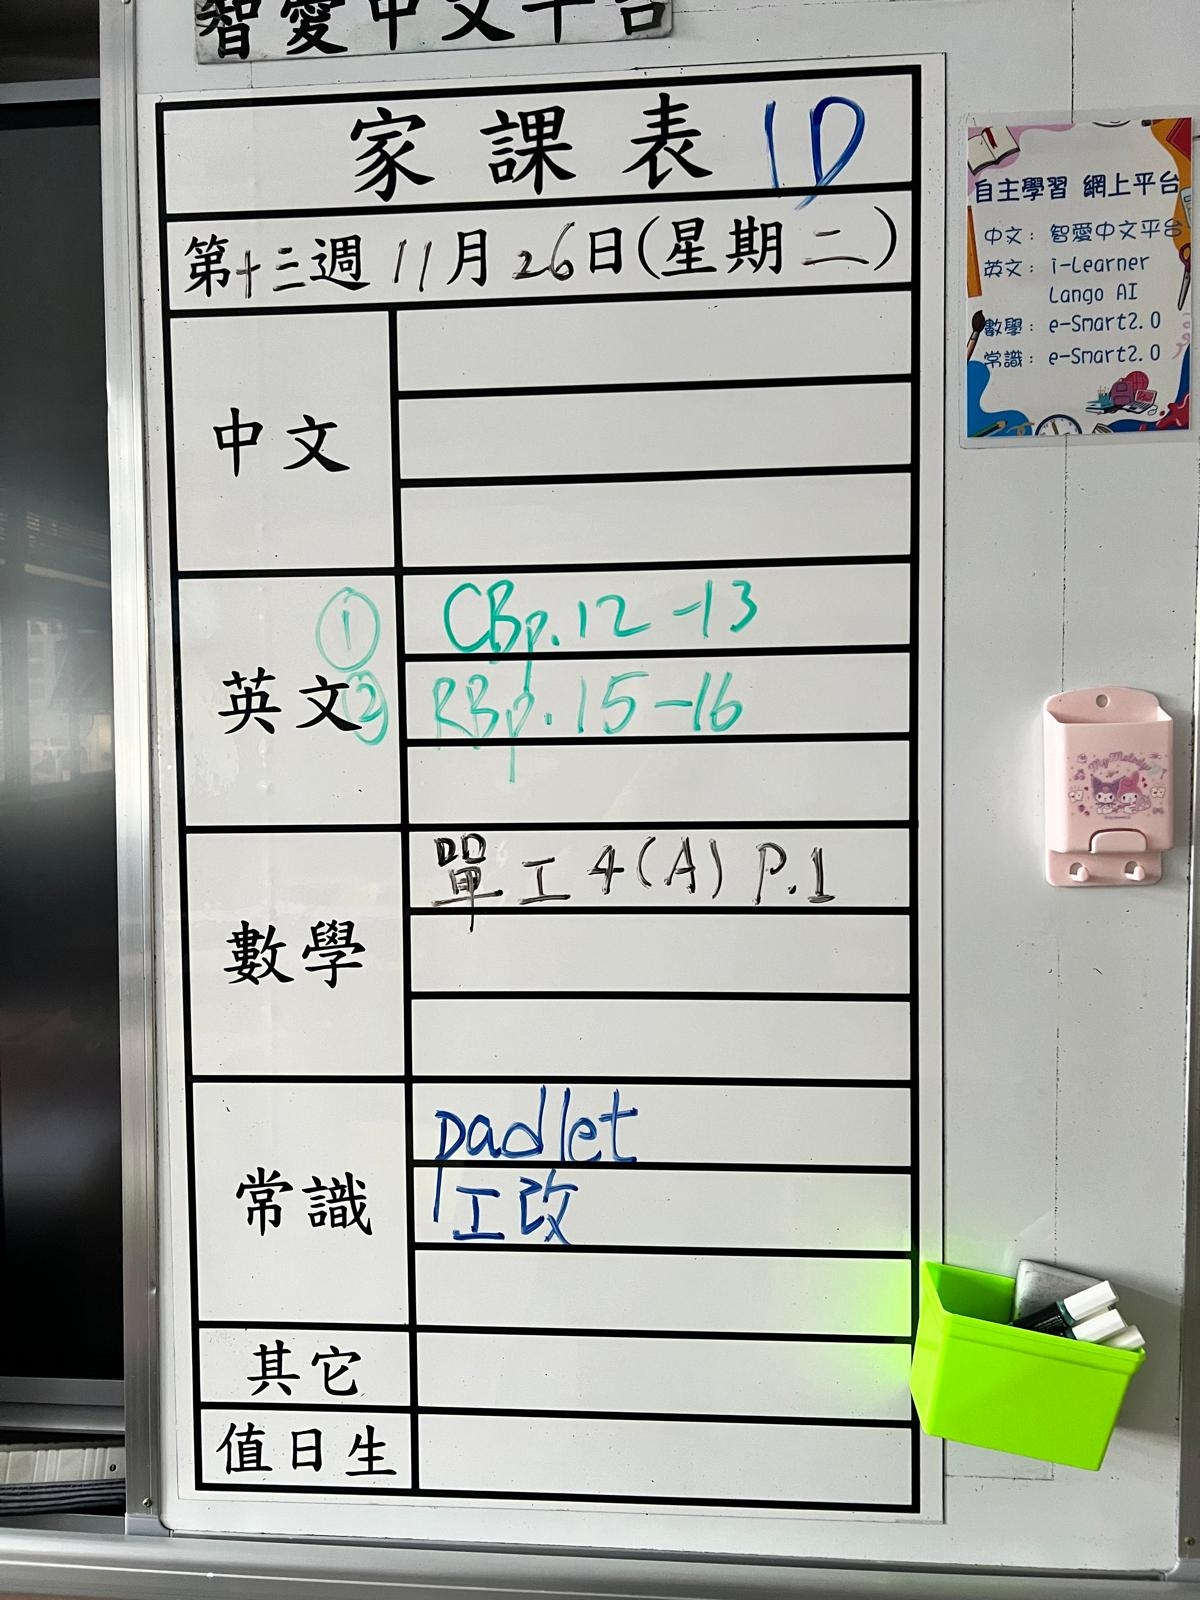 智愛中文平台
家課表 1D
第十三週 11月26日(星期二)
中文
英文
① CBp.12-13
② RBp.15-16
數學
單工4(A) P.1
常識
padlet
工改
其它
值日生
自主學習 網上平台
中文: 智愛中文平台
英文: i-Learner
Lango AI
數學: e-Smart2.0
常識: e-Smart2.0
My Melody